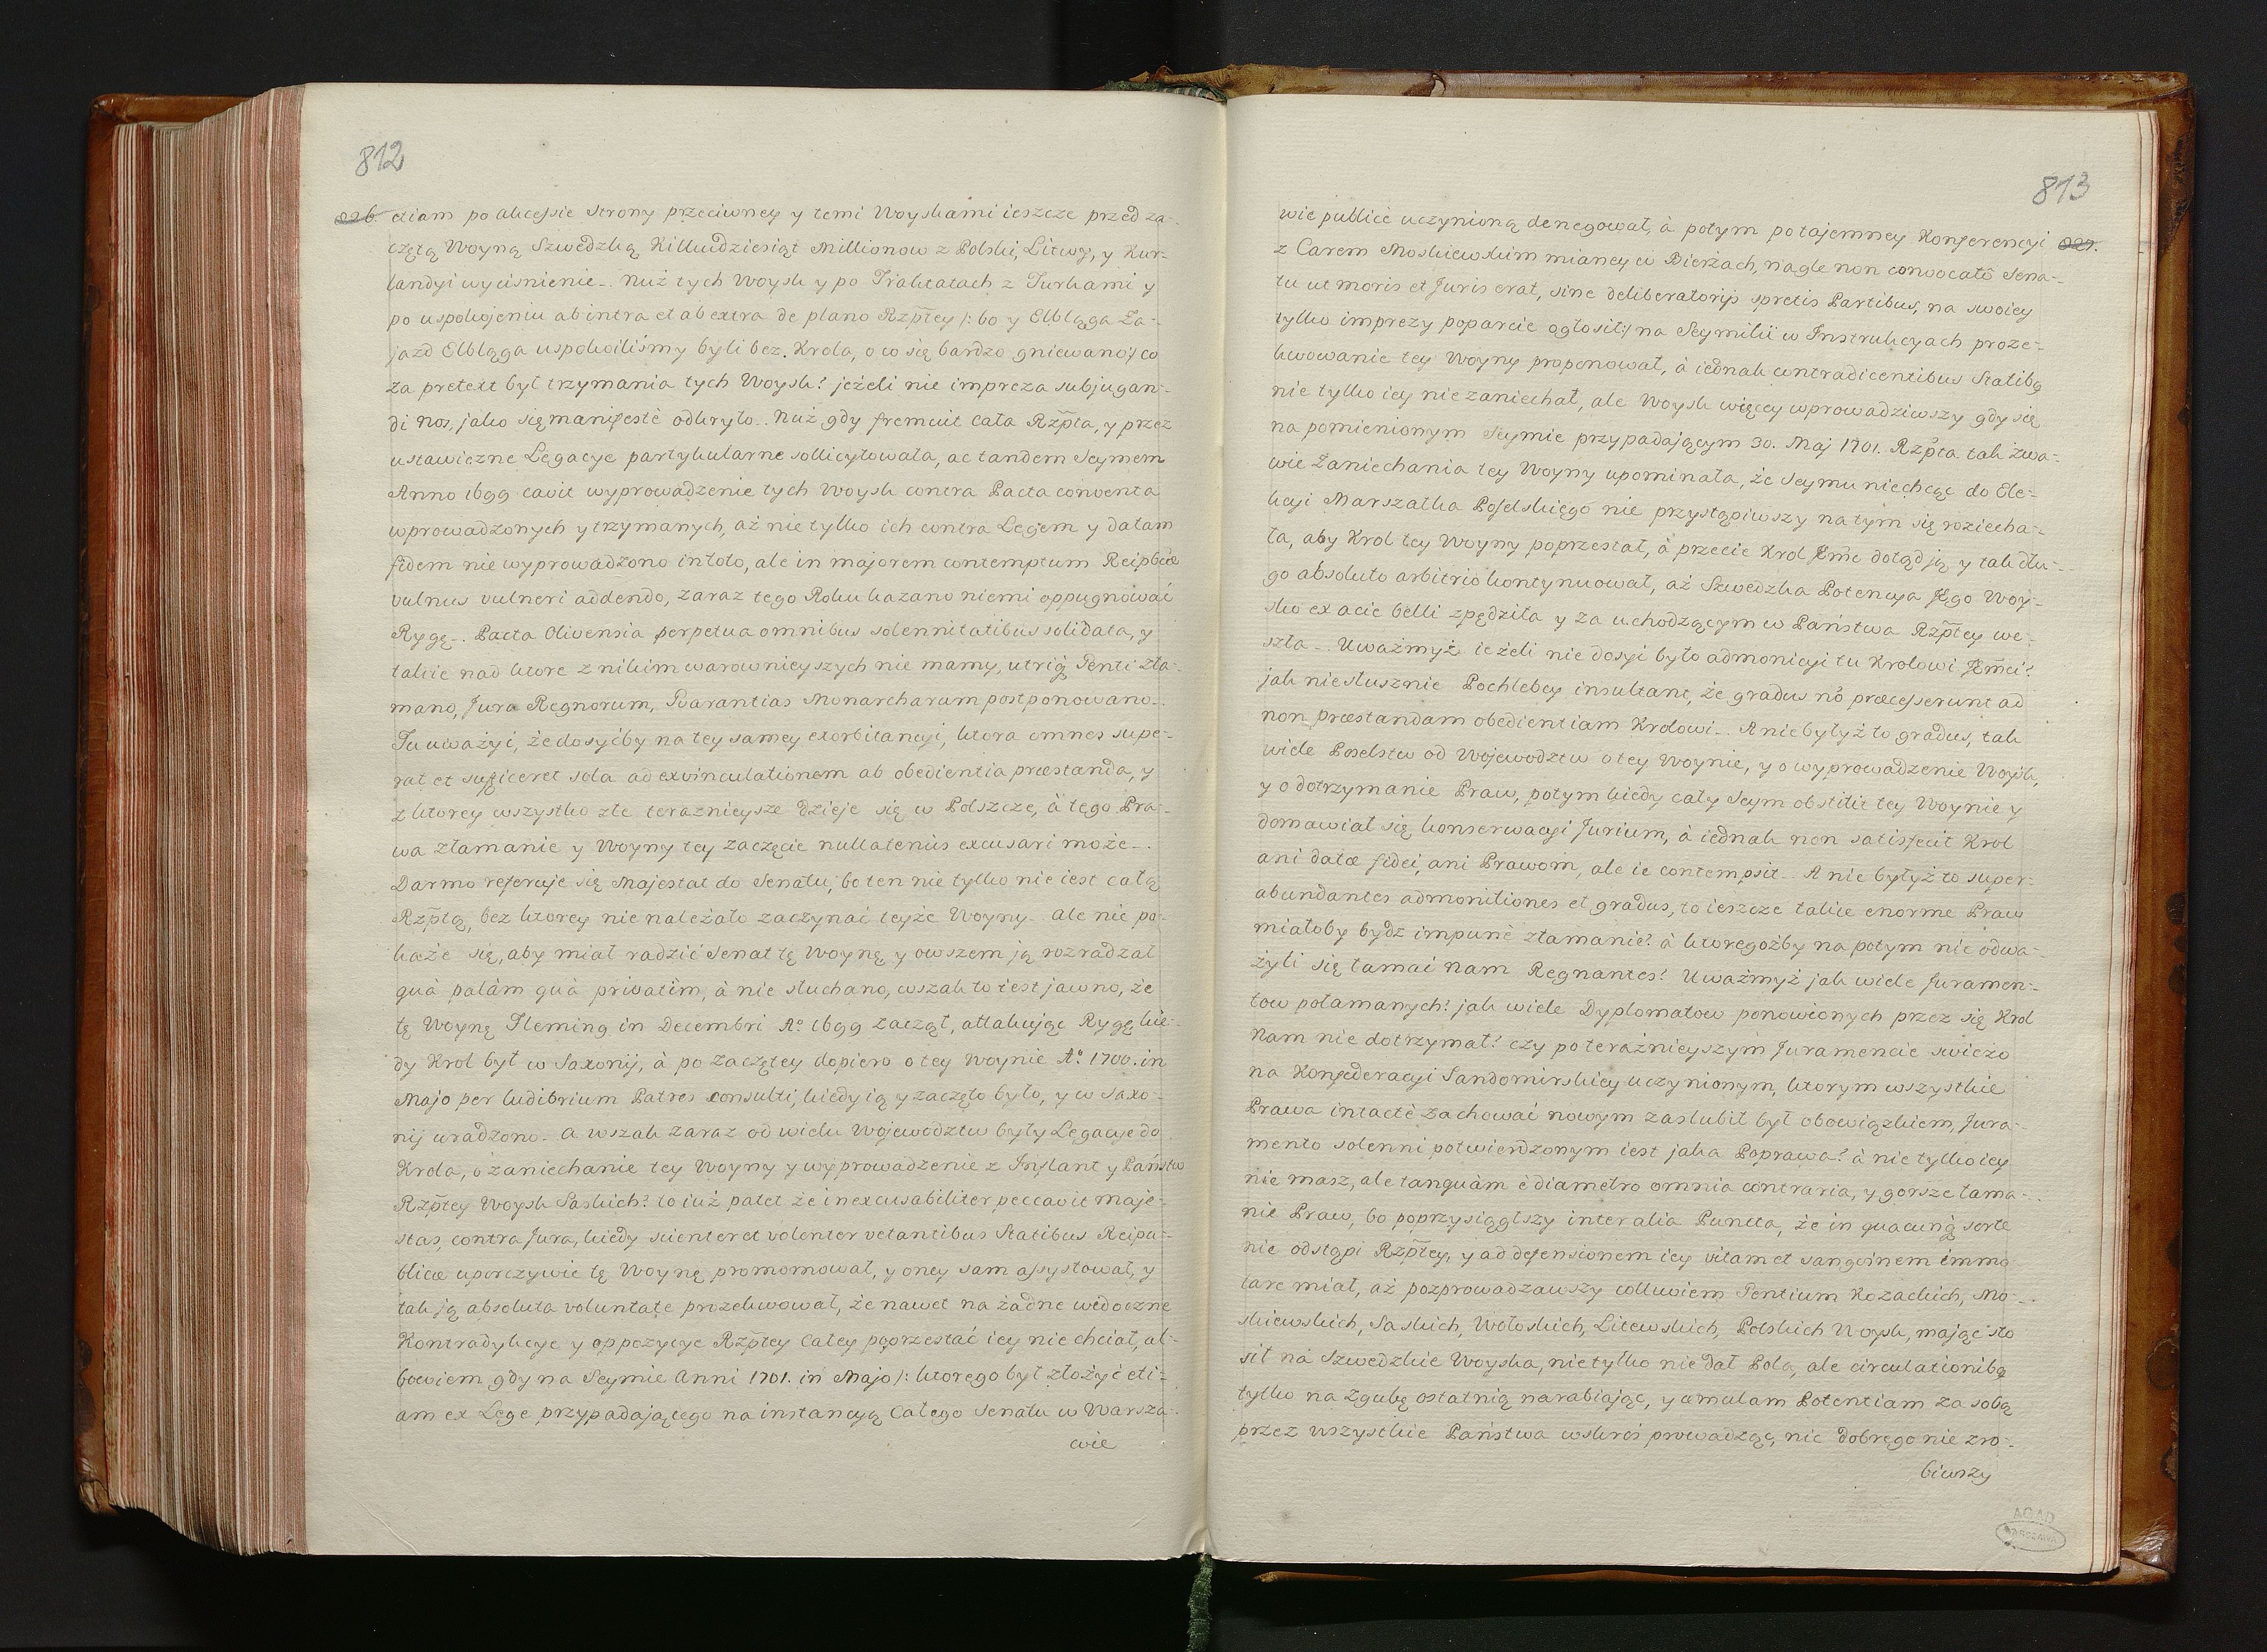 812
826. etiam po akcessie strony przeciwney y temi Woyskami ieszcze przed za-
czętą Woyną Szwedzką Killkudziesiąt Millionow z Polski, Litwy, y Kur-
landyi wyciśnienie.. Nuż tych Woysk y po Traktatach z Turkami y
po uspokojeniu ab intra et ab extra de plano Rzptey /: bo y Elbląga Za-
jazd Elbląga uspokoiliśmy byli bez Krola, o co się bardzo gniewano :/ co
za pretext był trzymania tych Woysk? jeżeli nie impreza subjugan-
di nos, jako się manifestè odkryło.. Nuż gdy fremuit cała Rzpta, y przez
ustawiczne Legacye partykularne sollicytowała, ac tandem Seymem
Anno 1699 cavit wyprowadzenie tych Woysk contra Pacta conventa
wprowadzonych y trzymanych, aż nie tylko ich contra Legem y datam
fidem nie wyprowadzono in toto, ale in majorem contemptum Reipbcæ
vulnus vulneri addendo, zaraz tego Roku kazano niemi oppugnować
Rygę.. Pacta Olivensia perpetua omnibus solennitatibus solidata, y
takie nad ktore z nikim warownieyszych nie mamy, utriq́ Genti zła-
mano, Jura Regnorum, Gvarantias Monarcharum postponowano..
Tu uważyć, że dosyćby na tey samey exorbitancyi, ktora omnes supe-
rat et sufficeret sola ad exvinculationem ab obedientia præstanda, y
z ktorey wszystko złe teraźnieysze dzieje się w Polszcze, à tego Pra-
wa złamanie y Woyny tey zaczęcie nullatenùs excusari może..
Darmo referuje się Majestat do Senatu, bo ten nie tylko nie iest całą
Rzptą, bez ktorey nie należało zaczynać teyże Woyny.. ale nie po-
każe się, aby miał radzić Senat tę Woynę y owszem ją rozradzał
quà palàm quà privatim, à nie słuchano, wszak to iest jawno, że
tę Woynę Fleming in Decembri Ao. 1699 zaczął, attakując Rygę kie-
dy Krol był w Saxonij, à po zaczętey dopiero o tey Woynie Ao. 1700. in
Majo per ludibrium Patres consulti, kiedy ią y zaczęto było, y w Saxo-
nij uradzono.. a wszak zaraz od wielu Wojewodztw były Legacye do
Krola, o zaniechanie tey Woyny y wyprowadzenie z Inflant y Państw
Rzptey Woysk Saskich? to iuż patet że inexcusabiliter peccavit Maje-
stas, contra Jura, kiedy scienter et volenter vetantibus Statibus Reipu-
blicæ uporczywie tę Woynę promomował, y oney sam assystował, y
tak ją absoluta voluntate prozekwował, że nawet na żadne widoczne
Kontradykcye y oppozycye Rzptey Całey poprzestać iey nie chciał, al-
bowiem gdy na Seymie Anni 1701. in Majo /: ktorego był złożyć eti-
am ex Lege przypadającego na instancyą Całego Senatu w Warsza-
wie
813
wie publicè uczynioną denegował, à potym po tajemney Konferencyi 827.
z Carem Moskiewskim mianey w Bierżach, nagle non convocatô Sena-
tu ut moris et Juris erat, sine deliberatorijs spretis Partibus, na swoiey
tylko imprezy poparcie ogłosił :/ na Seymiki w Instrukcyach proze-
kwowanie tey Woyny proponował, à iednak contradicentibus Statibq
nie tylko iey nie zaniechał, ale Woysk więcey wprowadziwszy gdy się
na pomienionym Seymie przypadającym 30. Maj 1701. Rzpta tak żwa-
wie Zaniechania tey Woyny upominała, że Seymu niechcąc do Ele-
kcyi Marszałka Poselskiego nie przystąpiwszy na tym się roziecha-
ła, aby Krol tey Woyny poprzestał, à przecie Krol Jmć dotąd ją y tak dłu-
go absoluto arbitrio kontynuował, aż Szwedzka Potencya Jego Woy-
sko ex acie belli zpędziła y za uchodzącym w Państwa Rzptey we-
szła.. Uważmyż ieżeli nie dosyć było admonicyi tu Krolowi Jmci?
jak niesłusznie Pochlebcy insultant, że gradus nō præcesserunt ad
non præstandam obedientiam Krolowi.. A nie byłyż to gradus, tak
wiele Poselstw od Wojewodztw o tey Woynie, y o wyprowadzenie Woysk,
y o dotrzymanie Praw, potym kiedy cały Seym obstitit tey Woynie y
domawiał się konserwacyi Jurium, à iednak non satisfecit Krol
ani datæ fidei, ani Prawom, ale ie contempsit.. A nie byłyż to super-
abundantes admonitiones et gradus, to ieszcze takie enorme Praw
miałoby bydz impunè złamanie? à ktoregożby na potym nie odwa-
żyli się łamać nam Regnantes? Uważmyż jak wiele Juramen-
tow połamanych? jak wiele Dyplomatow ponowionych przez się Krol
Nam nie dotrzymał? czy po teraźnieyszym Juramencie swieżo
na Konfederacyi Sandomirskiey uczynionym, ktorym wszystkie
Prawa intactè zachować nowym zaslubił był obowiązkiem, Jura-
mento solenni potwierdzonym iest jaka Poprawa? à nie tylko iey
nie masz, ale tanquàm è diametro omnia contraria, y gorsze łama-
nie Praw, bo poprzysiągłszy inter alia Puncta, że in quacunq́ sorte
nie odstąpi Rzptey, y ad defensionem iey vitam et sangvinem immo
lare miał, aż pozprowadzawszy colluviem Gentium Kozackich, Mo-
skiewskich, Saskich, Wołoskich, Litewskich, Polskich Woysk, mając sto
sił na Szwedzkie Woyska, nie tylko nie dał Pola, ale circulationibq
tylko na Zgubę ostatnią narabiając, y æmulam Potentiam za sobą
przez wszystkie Państwa wskroś prowadząc, nic dobrego nie zro-
biwszy
AGAD
WARSZAWA